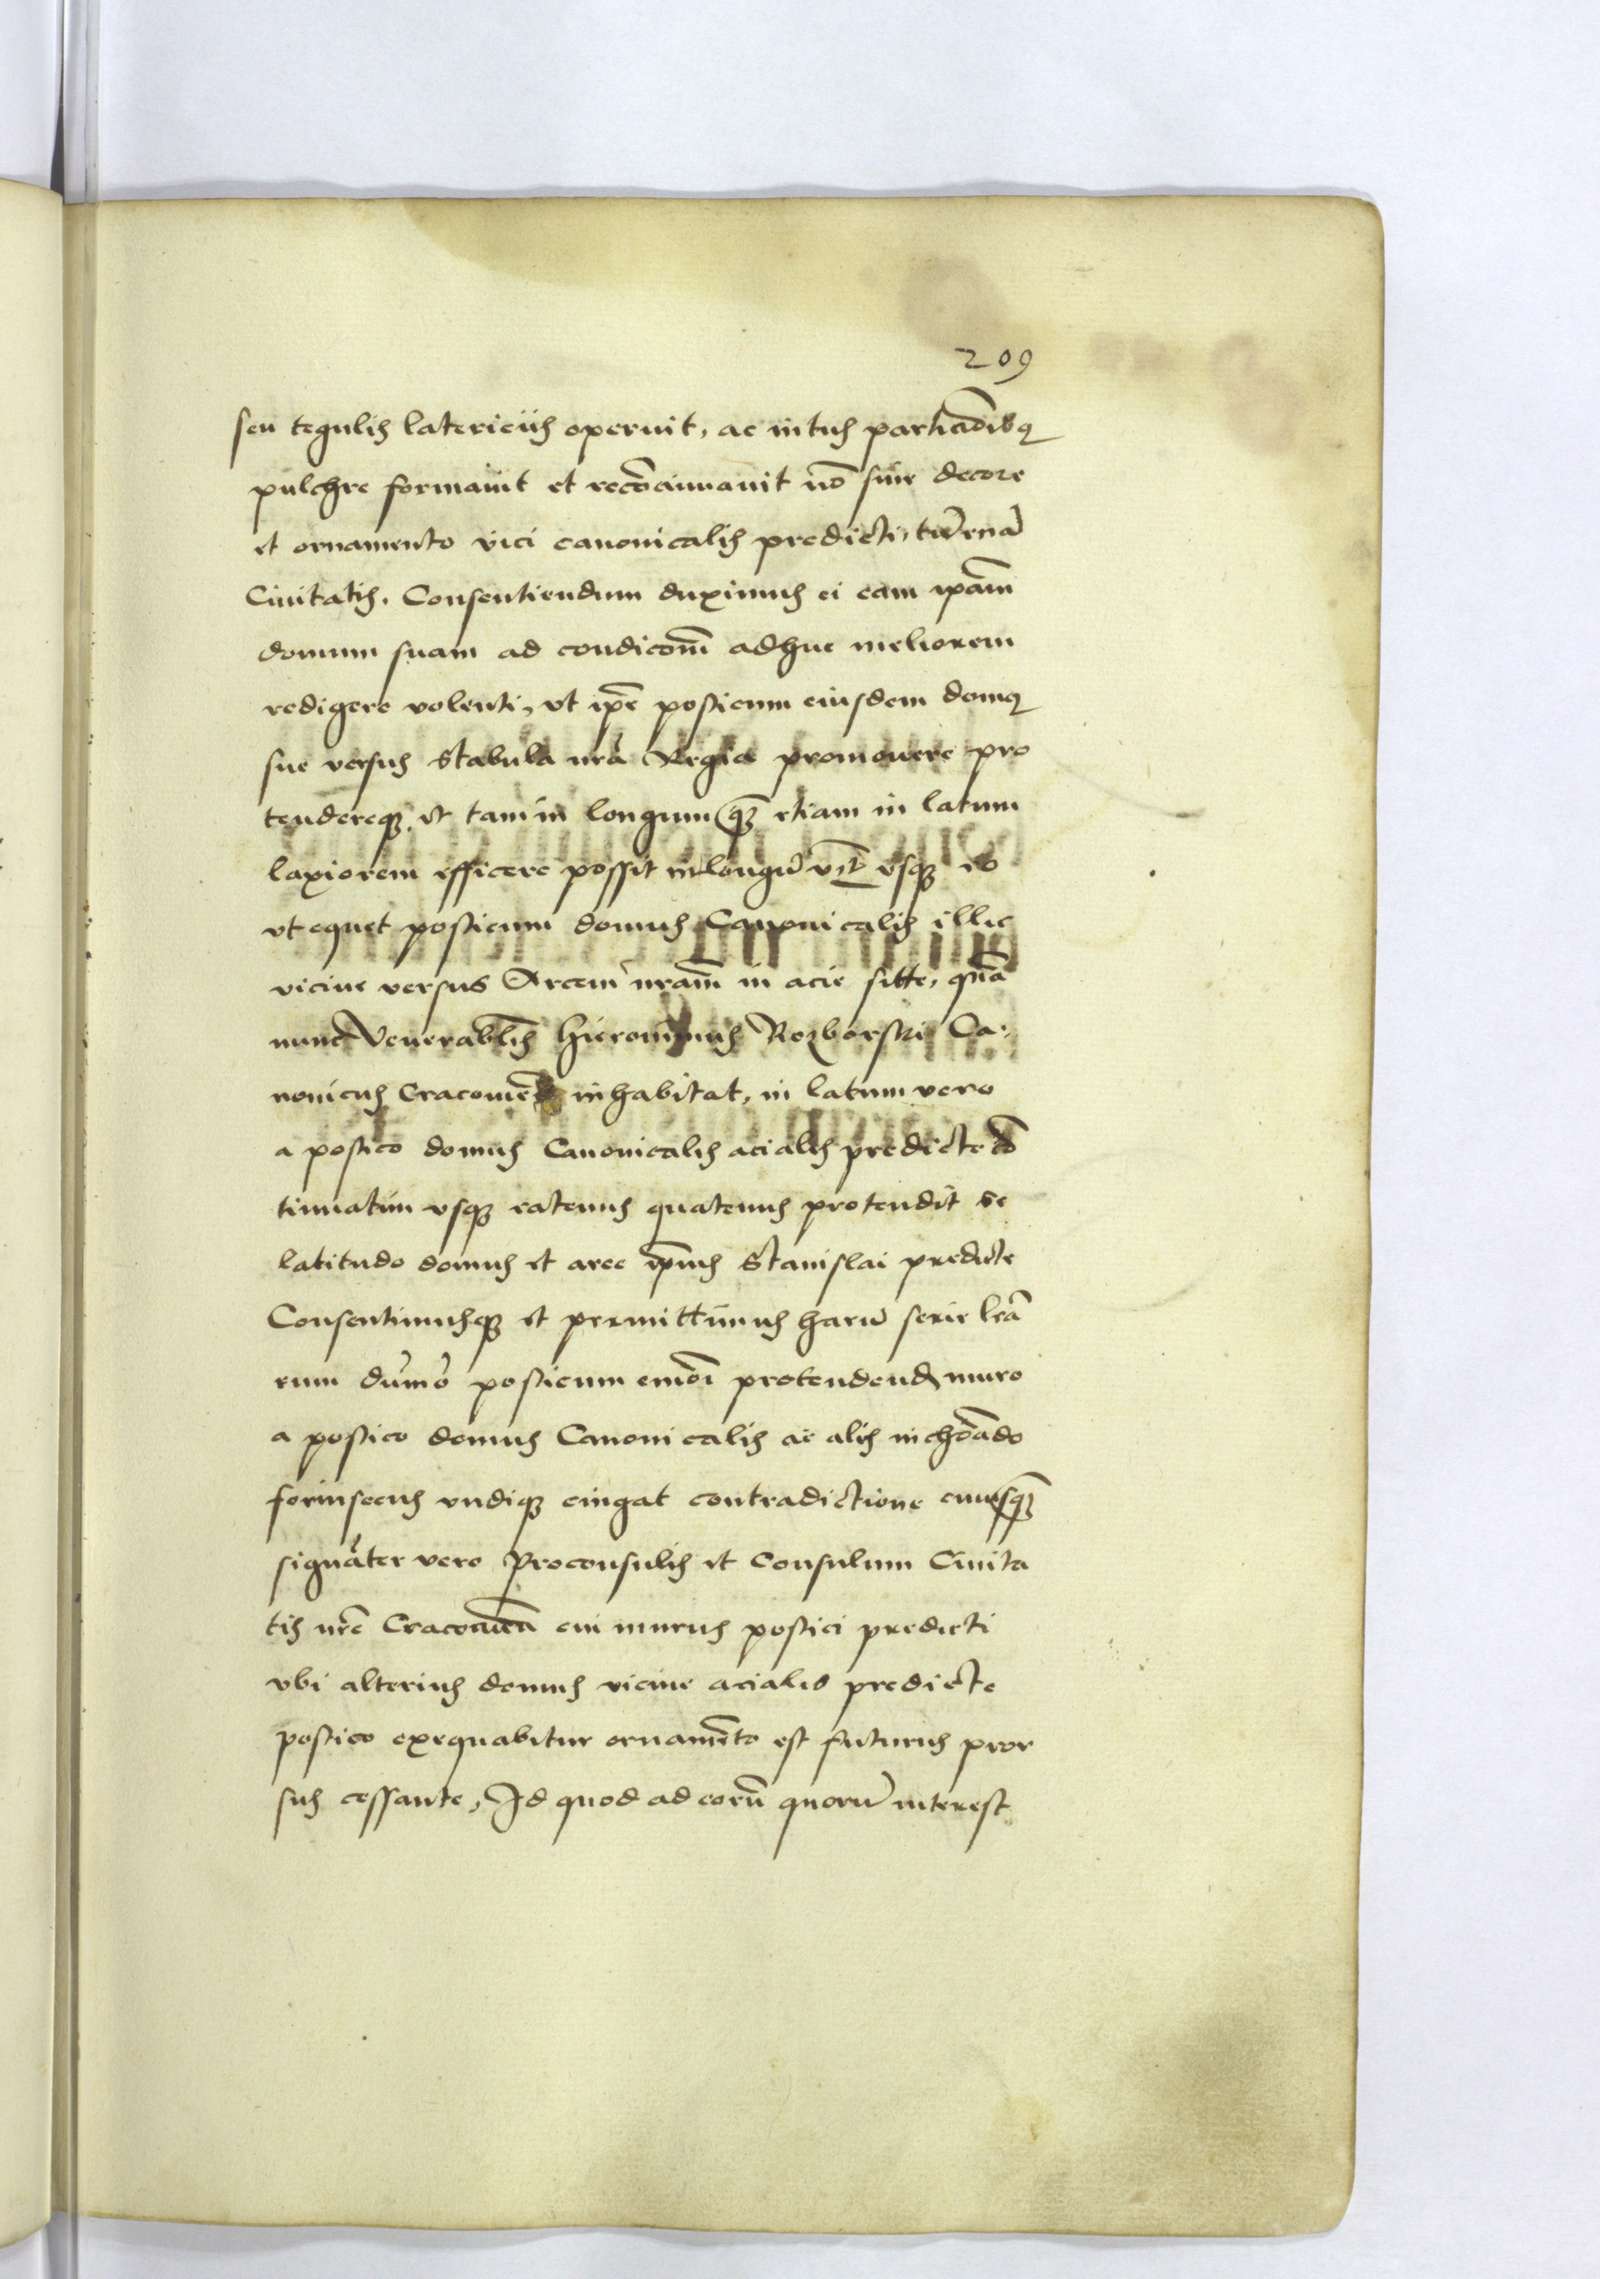 209
seu tegulis latericiis operuit, ac intus
pulchre formauit et recōcinnauit nō sine decore
et ornamento vici canonicalis predicti,
Ciuitatis. Consentiendum duximus ei eam ipām
domum suam ad condicōnē adhuc meliorem
redigere volenti, vt ipē posticum eiusdem domꝰ
sue versus Stabula nrā Regia promouere pro
tendereqꝫ et tam in longum qꝫ etiam in latum
laxiorem efficere possit in longū usqꝫ eo
vt equet posticum domus Canonicalis illic
vicine versus Arcem nrām in acie site, quā
nunc Venerabilis Hieronimus Rozborski Ca:
nonicus Cracouiēn inhabitat, in latum vero
a postico domus Canonicalis acialis predicte cō
tinuatim vsqꝫ eatenus quatenus protendit se
latitudo domus et aree ipīus Stanislai predicte
Consentimusqꝫ et permittimus harū serie lrā
rum dūmō posticum emōi protendend muro
a postico domus Canonicalis acialis inchoādo
forinsecus vndiqꝫ cingat contradictione cuiusqꝫ
signāter vero Proconsulis et Consulum Ciuita
tis nrē Cracouieñ cui murus postici predicti
vbi alterius domus vicine acialis predicte
postico exequabitur ornamēto est futurus pror
sus cessante, Id quod ad eorū quorū interest